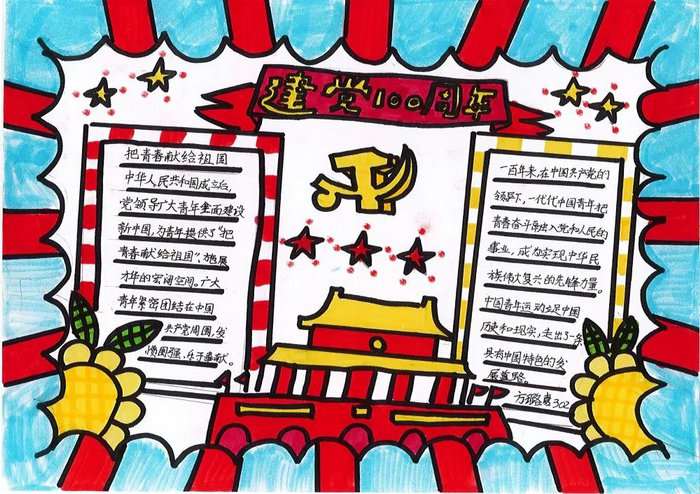 建党100周年
把青春献给祖国
中华人民共和国成立后,
党领导广大青年全面建设
新中国,为青年提供了"把
青春献给祖国",施展
才华的宏阔空间。广大
青年紧密团结在中国
共产党周围,发
愤图强,乐于奉献。
一百年来,在中国共产党的
领导下,一代代中国青年把
青春奋斗融入党和人民的
事业,成为实现中华民
族伟大复兴的先锋力量。
中国青年运动立足中国
历史和现实,走出了一条
具有中国特色的发
展道路。
302